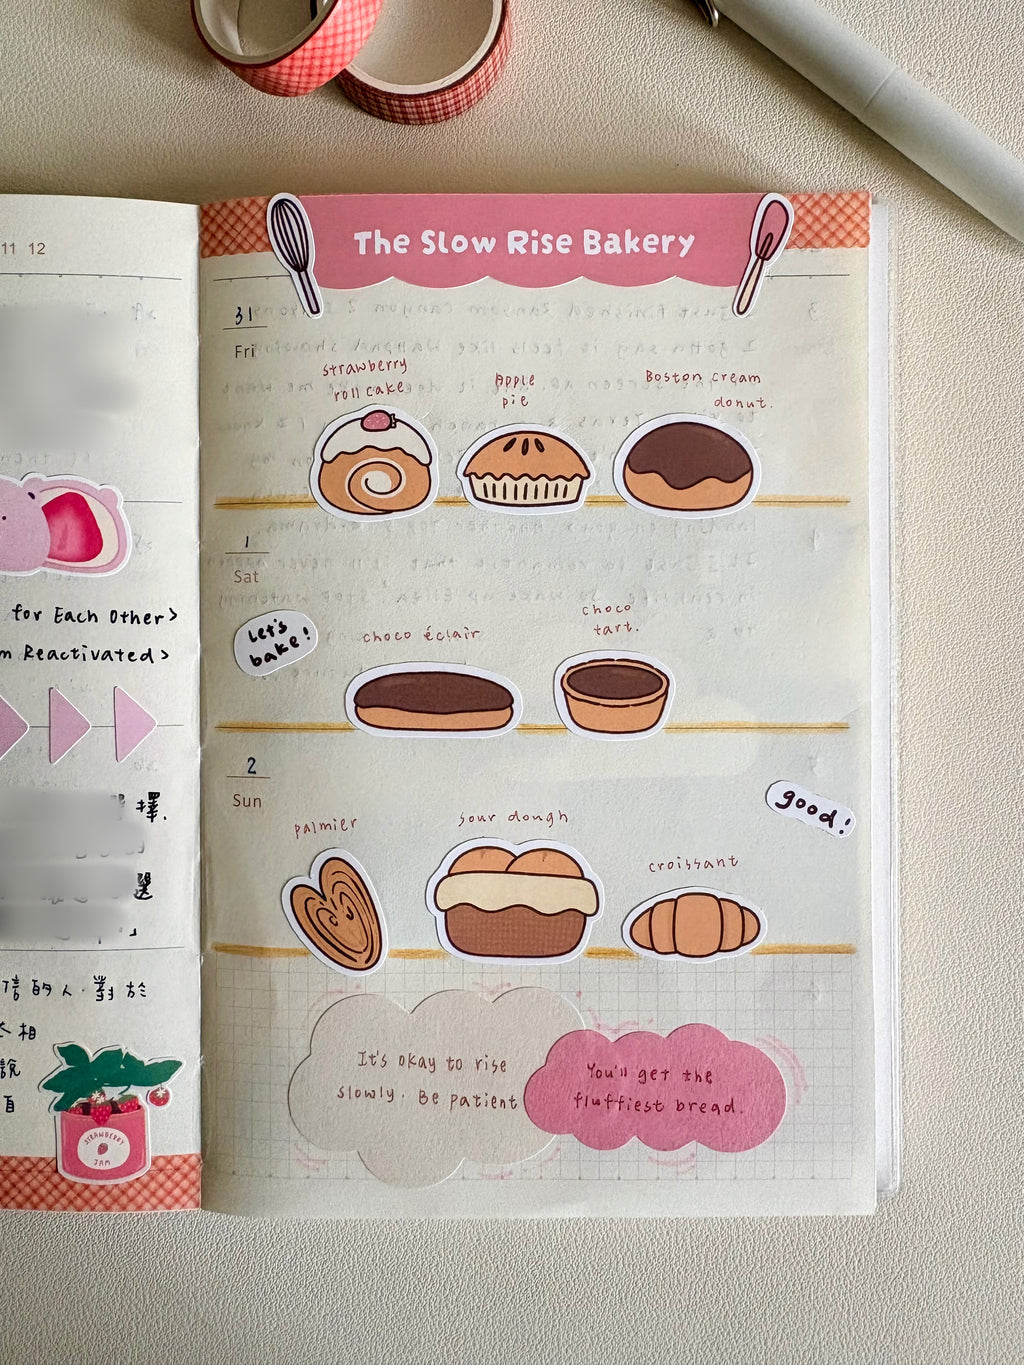 11 12
for Each Other>
Reactivated>
擇.
選
」
的人.對於
相
STRAWBERRY
JAM
The Slow Rise Bakery
31
Fri
strawberry
roll cake
Apple
pie
Boston cream
donut.
1
Sat
Let's
bake!
choco éclair
choco
tart.
2
Sun
good!
palmier
sour dough
croissant
It's okay to rise
slowly. Be patient
You'll get the
fluffiest bread.